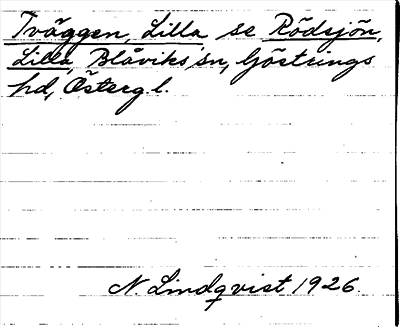 Tväggen, Lilla, se Rödsjön,
Lilla, Blåviks sn, Göstrings
hd, Österg. l.
N. Lindqvist 1926.